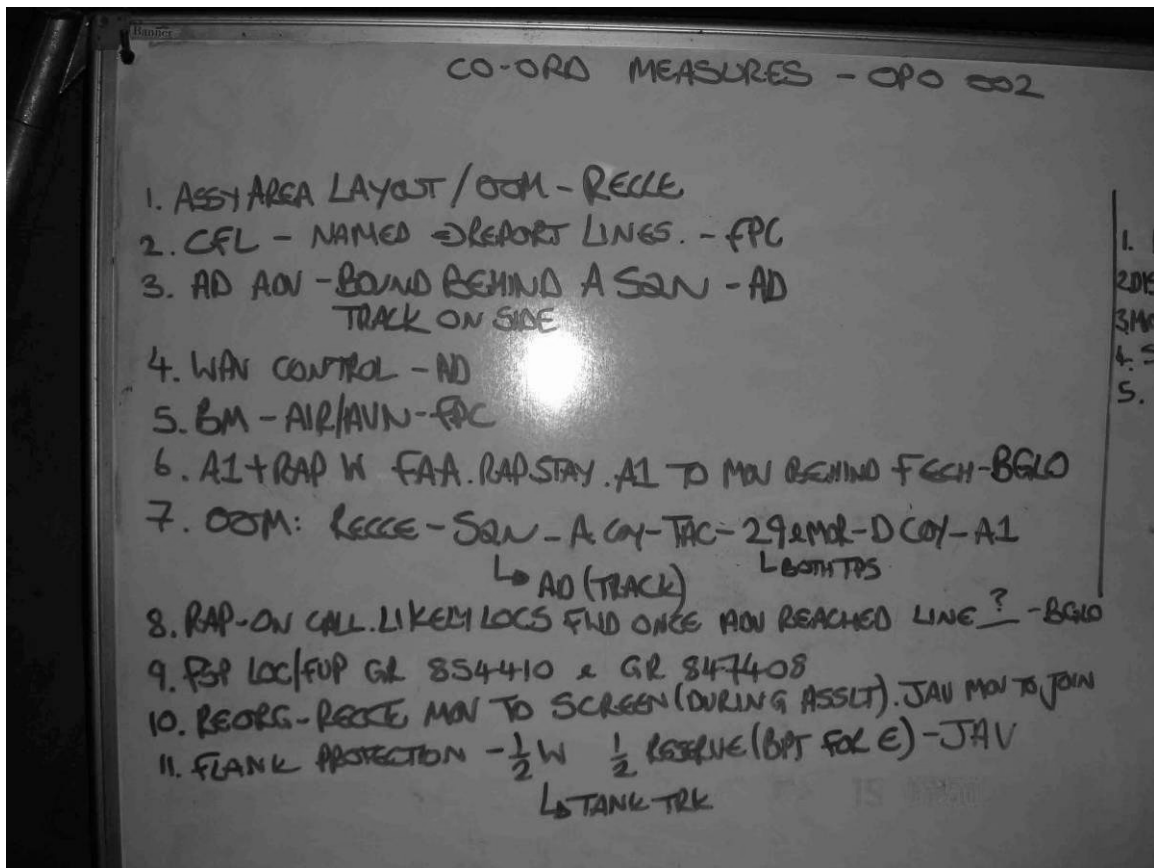 Banner
CO-ORD MEASURES - OPO 002
1. ASSY AREA LAYOUT / OOM - RECCE
2. CFL - NAMED ⇒ REPORT LINES. - FPC
3. AD ADV - BOUND BEHIND A SQN - AD
TRACK ON SIDE
4. WPN CONTROL - AD
5. BM - AIR/AVN - FPC
6. A1 + RAP W FAA. RAP STAY. A1 TO MOV BEHIND F ECH - BGLO
7. OOM: RECCE - SQN - A COY - TAC - 29 & MOR - D COY - A1
↳ AD (TRACK) ↳ BOTH TPS
8. RAP - ON CALL. LIKELY LOCS FWD ONCE ADV REACHED LINE ? - BGLO
9. FSP LOC/FUP GR 854410 & GR 847408
10. REORG - RECCE MOV TO SCREEN (DURING ASSLT). JAV MOV TO JOIN
11. FLANK PROTECTION - 1/2 W 1/2 RESERVE (BPT FOR E) - JAV
↳ TANK TRK
1.
2. DIS
3. MO
4. S
5.